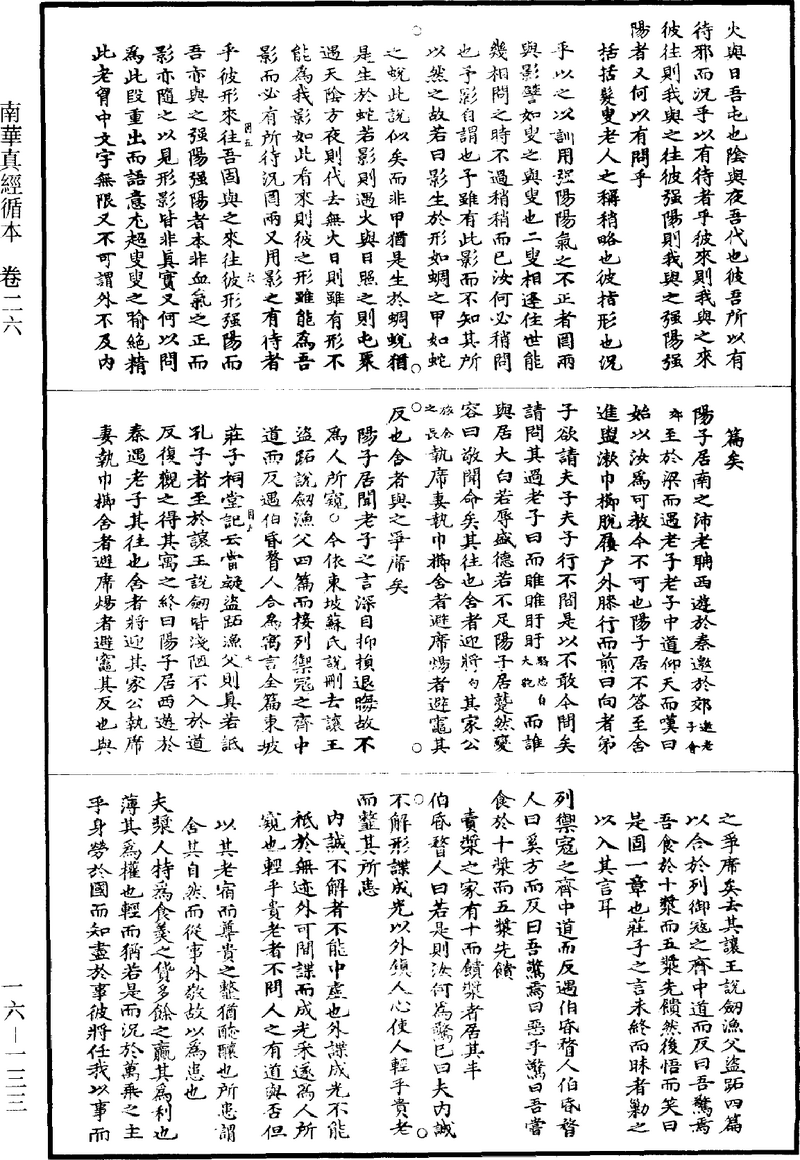 南華真經循本　卷二六
一六—一三三
火與日吾屯也陰與夜吾代也彼吾所以有
待邪而況乎以有待者乎彼來則我與之來
彼往則我與之往彼强陽則我與之强陽强
陽者又何以有問乎
括括髮叟老人之稱稍略也彼指形也況
乎以之以訓用强陽陽氣之不正者罔兩
與影譬如叟之與叟也二叟相逢住世能
幾相問之時不過稍稍而已汝何必稍問
也予影自謂也予雖有此影而不知其所
以然之故若曰影生於形如蜩之甲如蛇
之蛻此說似矣而非甲猶是生於蜩蛻猶
是生於蛇若影則遇火與日照之則屯聚
遇天陰方夜則代去無火日則雖有形不
能為我影如此看來則彼之形雖能為吾
影而必有所待況罔兩又用影之有待者
乎彼形來往吾固與之來往彼形强陽而
吾亦與之强陽强陽者本非血氣之正而
影亦隨之以見形影皆非真實又何以問
為此段重出而語意尤超叟叟之喻絕精
此老胷中文字無限又不可謂外不及內
篇矣
陽子居南之沛老聃西遊於秦邀於郊邀老子會郊
至於梁而遇老子老子中道仰天而嘆曰
始以汝為可教今不可也陽子居不答至舍
進盥漱巾櫛脫屨戶外膝行而前曰向者弟
子欲請夫子夫子行不閒是以不敢今閒矣
請問其過老子曰而睢睢盱盱而誰
與居大白若辱盛德若不足陽子居蹵然變
容曰敬聞命矣其往也舍者迎將句其家公
旅舍之長執席妻執巾櫛舍者避席煬者避竈其
反也舍者與之爭席矣
陽子居聞老子之言深自抑損退晦故不
為人所窺○今依東坡蘇氏說刪去讓王
盜跖說劒漁父四篇而接列禦寇之齊中
道而反遇伯昏瞀人合為寓言全篇東坡
莊子祠堂記云嘗疑盜跖漁父則真若詆
孔子者至於讓王說劒皆淺陋不入於道
反復觀之得其寓言之終曰陽子居西遊於
秦遇老子其往也舍者將迎其家公執席
妻執巾櫛舍者避席煬者避竈其反也與
之爭席矣去其讓王說劒漁父盜跖四篇
以合於列御寇之齊中道而反曰吾驚焉
吾食於十漿而五漿先饋然後悟而笑曰
是固一章也莊子之言未終而昧者勦之
以入其言耳
列禦寇之齊中道而反遇伯昏瞀人伯昏瞀
人曰奚方而反曰吾驚焉曰惡乎驚曰吾嘗
食於十漿而五漿先饋
賣漿之家有十而饋漿者居其半
伯昏瞀人曰若是則汝何為驚已曰夫內誠
不解形諜成光以外鎮人心使人輕乎貴老
而韲其所患
內誠不解者不能中虛也外諜成光不能
袛於無迹外可間諜而成光采遂為人所
窺也輕乎貴老者不問人之有道與否但
以其老宿而尊貴之韲猶醯釀也所患謂
舍其自然而從事外敬故以為患也
夫漿人特為食羹之貨多餘之贏其為利也
薄其為權也輕而猶若是而況於萬乘之主
乎身勞於國而知盡於事彼將任我以事而